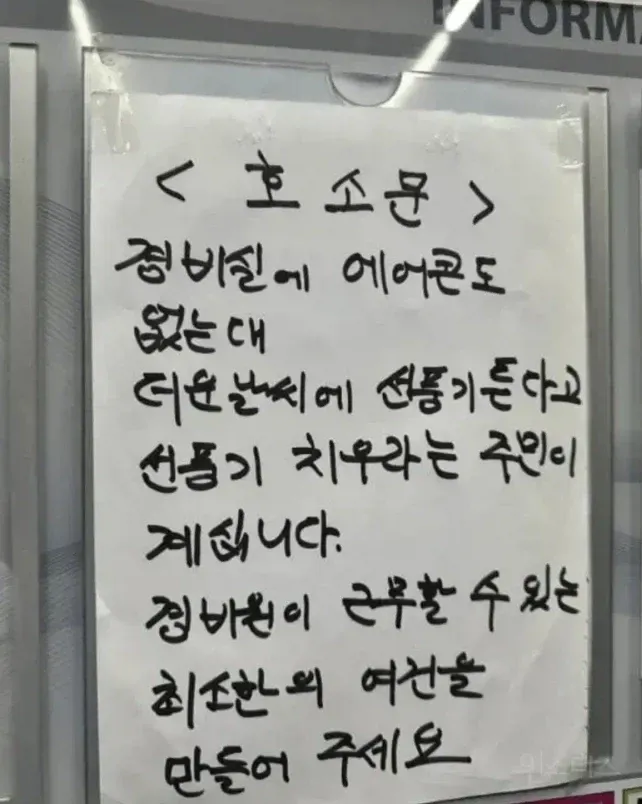 INFORMA
< 호소문 >
경비실에 에어콘도
없는대
더운날씨에 선풍기튼다고
선풍기 치우라는 주민이
계십니다.
경비원이 근무할 수 있는
최소한의 여건을
만들어 주세요